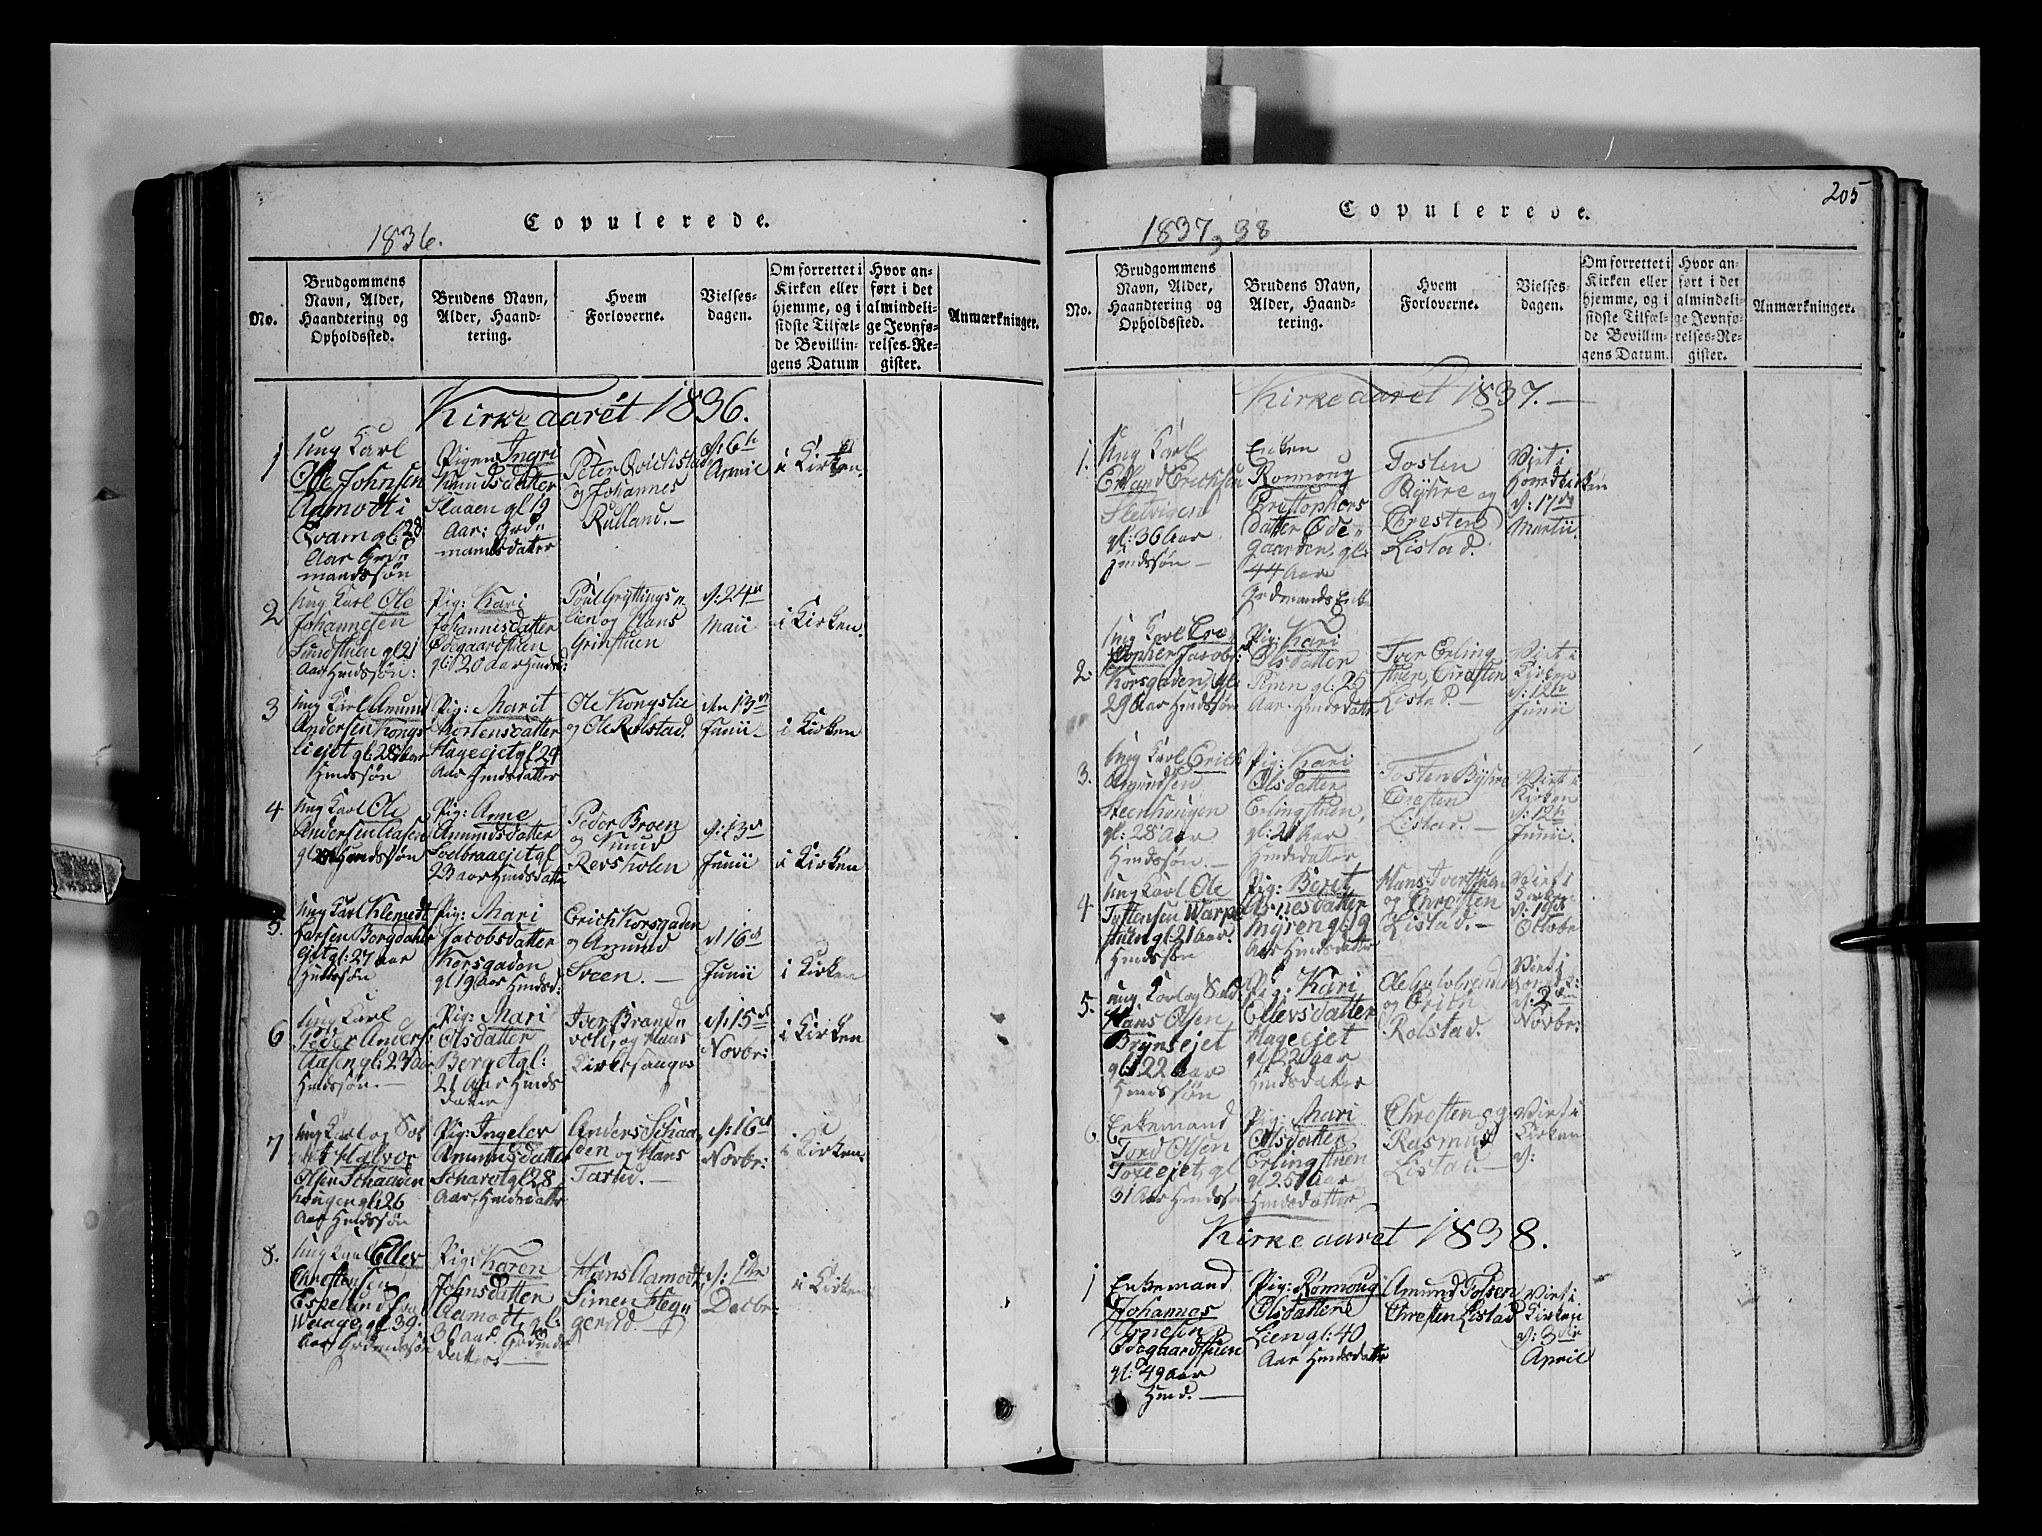 Copulerede.
1836.
No.
Brudgommens
Navn, Alder,
Haandtering og
Opholdssted.
Brudens Navn,
Alder, Haand-
tering.
Hvem
Forloverne.
Vielses-
dagen.
Om forrettet i
Kirken eller
hjemme, og i
sidste Tilfæl-
de Bevillin-
gens Datum
Hvor an-
ført i det
almindeli-
ge Jevnfø-
relses-Re-
gister.
Anmærkninger.
Kirkeaaret 1836.
1
Ung Karl
Ole Johnsen
Aamodt i
Qvam gl: 28
Aar Grd=
mandssøn
Pigen Ingri
Knudsdatter
gl 19
Aar: Grd=
mandsdatter
Peter Qvilistad
og Johannes
Rulland.
d: 6te
April
i Kirken
2
Ung Karl Ole
Johannesen
Sundstuen gl 21
Aar Huusmandssøn:
Pig: Kari
Johannesdatter
Ødegaardstuen
gl: 20 Aar
Poul Gryttings=
lien og Hans
Grinstuen
d: 24de
Maii
i Kirken.
3
Ung Karl Amund
Andersen Kongs
liejet gl: 28 Aar
Hmdssøn
Pig: Marit
Mortensdatter
Hageejet gl 29
Aar Hmdsdatter
Ole Kongslie
og Ole Rolstad.
den 13de
Junii
i Kirken
4
Ung Karl Ole
Andersen Aasen
Hmdssøn
Pig: Anne
Amundsdatter
Solbraaejet gl
23 Aar Hmdsdatter
Peder Broen
og Knud
Revsholen
d: 13de
Junii
i Kirken
5.
Ung Karl Klemedt
Larsen Borgdals
ejet gl: 27 Aar
Hmdssøn
Pig: Mari
Jacobsdatter
Korsgaden
gl 19 Aar Hmdsd:
Erich Korsgaden
og Amund
Sveen.
d 16de
Junii
i Kirken
6
Ung Karl
Peder Anders:
Aasen gl: 23 Aar
Hmdssøn.
Pig: Mari
Olsdatter
Berget gl:
21 Aar Hmds
datter
Iver Brand=
vold, og Hans
d: 15de
Novbr:
i Kirken
7
Ung Karl og Sol
dat Halvor
Olsen Schaaden
haugen gl: 26
Aar Hmdssøn
Pig: Ingelev
Amundsdatter
gl 28
Aar Hmdsdatter
Anders Schaa
den og Hans
d: 16de
Novbr:
i Kirken.
8.
Ung Karl Ellev
Christensen
Espelund fra
Waage, gl 39.
Aar Grdmandssøn
Pig: Karen
Johnsdatter
Aamodt, gl:
Aar. Grdmds
datter
Hans Aamodt
Simen Hegn
gerud.
d:
Decbr:
i Kirken
205
Copulerede.
1837, 38
No.
Brudgommens
Navn, Alder,
Haandtering og
Opholdssted.
Brudens Navn,
Alder, Haand-
tering.
Hvem
Forloverne.
Vielses-
dagen.
Om forrettet i
Kirken eller
hjemme, og i
sidste Tilfæl-
de Bevillin-
gens Datum.
Hvor an-
ført i det
almindeli-
ge Jevnfø-
relses-Re-
gister.
Anmærkninger.
Kirkeaaret 1837.
1.
Ung Karl
Erland Erichsen
gl: 36 Aar
Hmdssøn
Enken
Ronnoug
Christophers
datter Øde=
gaarden, gl:
44 Aar
Grdmands Enke
Tosten
Bÿhre og
Chresten
Listad.
Viet i
Hovedkirken
d: 17de
Martii
2.
Ung Karl Cri
stopher Jacobs:
Korsgaden, gl:
29 Aar Hmdssøn
Pig: Kari
Olsdatter
gl: 25
Aar. Hmdsdatter
Iver Erling
stuen, Chresten
Listad.
Viet i
Kirken
d: 12te
Junii
3.
Ung Karl Erich
Amundsen
Steenhaugen
gl: 28 Aar
Hmdssøn.
Pig: Kari
Olsdatter
Erlingstuen,
gl: 21 Aar
Hmdsdatter
Tosten Bÿhre
Chresten
Listad.
Viet i
Kirken
d: 12te
Junii
4
Ung Karl Ole
Tostensen Warpe
stuen gl 21 Aar.
Hmdssøn
Pig: Berit
Arnesdatter
Myren gl 19
Aar Hmdsdatter
Hans Iverstuen
og Chresten
Listad.
Viet i
d: 19de
Octobr
5.
Ung. Karl og Sold:
Hans Olsen
Brynsejet
gl 22 Aar
Hmdssøn
Pig: Kari
Ellevsdatter
Hageejet
gl 22 Aar
Hmdsdatter
og Erich
Rolstad.
Viet i
d: 2den
Novbr:
6
Enkemand
Tord Olsen
gl
31 Aar Hmdssøn
Pig: Mari
Olsdatter
Erlingstuen
gl 25 Aar
Hmdsdatter
Chresten og
Rasmus
Listad.
Viet i
Kirken
d:
Kirkeaaret 1838.
1
Enkemand
Johannes
Arnesen
Ødegaardstuen
gl: 49 Aar
Hmd.
Pig: Rønnoug
Olsdatter
Lien gl: 40
Aar Hmdsdatter
Amund Tofsen
Chresten Listad
Viet i
Kirken
d: 3die
April